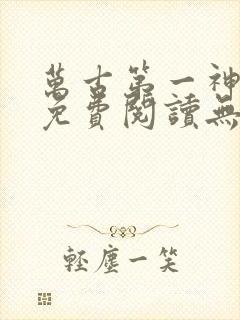 萬古第一神
免費閱讀無
輕塵一笑